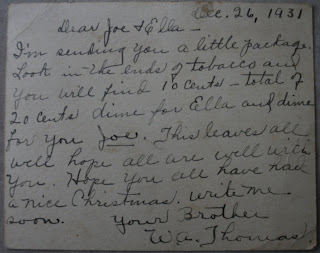 Dec. 26, 1931
Dear Joe & Ella -
I'm sending you a little package.
Look in the ends of tobacco and
you will find 10 cents - total of
20 cents dime for Ella and dime
for you Joe. This leaves all
well hope all are well with
you. Hope you all have had
a nice Christmas. write me
soon. Your Brother
W.A. Thomas.